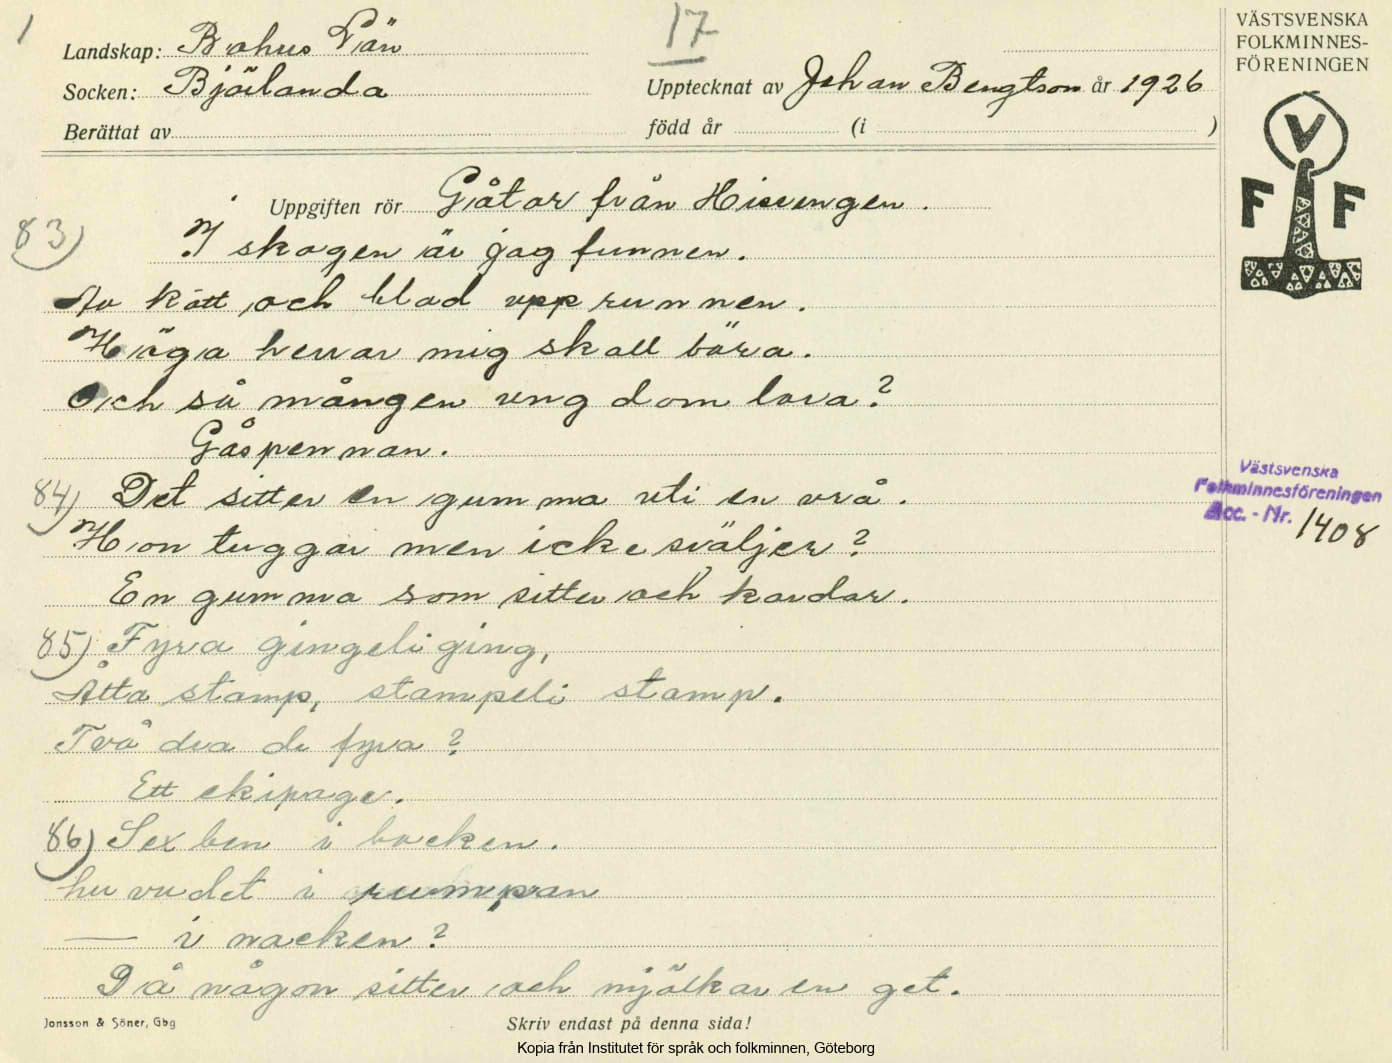 1
17
Landskap: Bohus Län
Socken: Björlanda
Upptecknat av Johan Bengtson år 1926
Berättat av
född år (i )
VÄSTSVENSKA
FOLKMINNES-
FÖRENINGEN
V
F F
Uppgiften rör Gåtor från Hisingen.
83) I skogen är jag funnen.
Av kött och blod upprunnen.
Höga herrar mig skall bära.
Och så mången ung dom lova?
Gåspennan.
84) Det sitter en gumma uti en vrå.
Hon tuggar men icke sväljer?
En gumma som sitter och kardar.
85) Fyra gingeli ging,
Åtta stamp, stampeli stamp.
Två dra de fyra?
Ett ekipage.
86) Sex ben i backen.
huvudet i rumpan
— i nacken?
Då någon sitter och mjölkar en get.
Västsvenska
Folkminnesföreningen
Acc. - Nr. 1408
Jonsson & Söner, Gbg
Skriv endast på denna sida!
Kopia från Institutet för språk och folkminnen, Göteborg